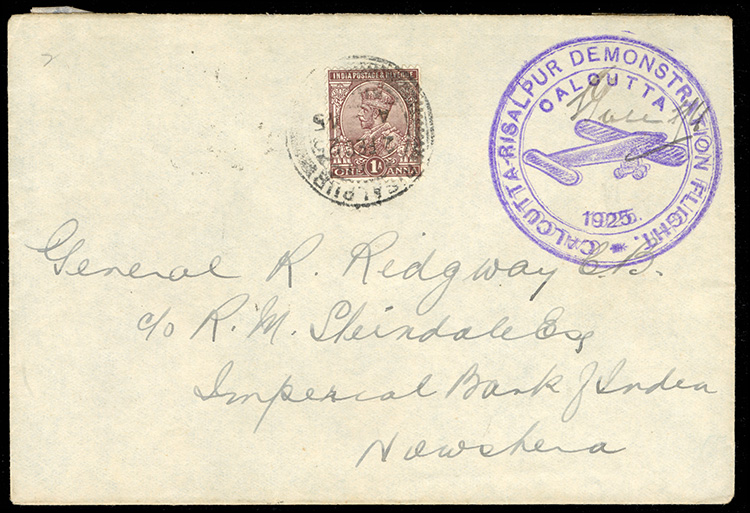 INDIA POSTAGE & REVENUE
ONE 1A ANNA
RISALPUR
CALCUTTA-RISALPUR DEMONSTRATION FLIGHT.
CALCUTTA
1925
General R. Ridgway C.B.
c/o R. M. Steindale Esq
Imperial Bank of India
Nowshera